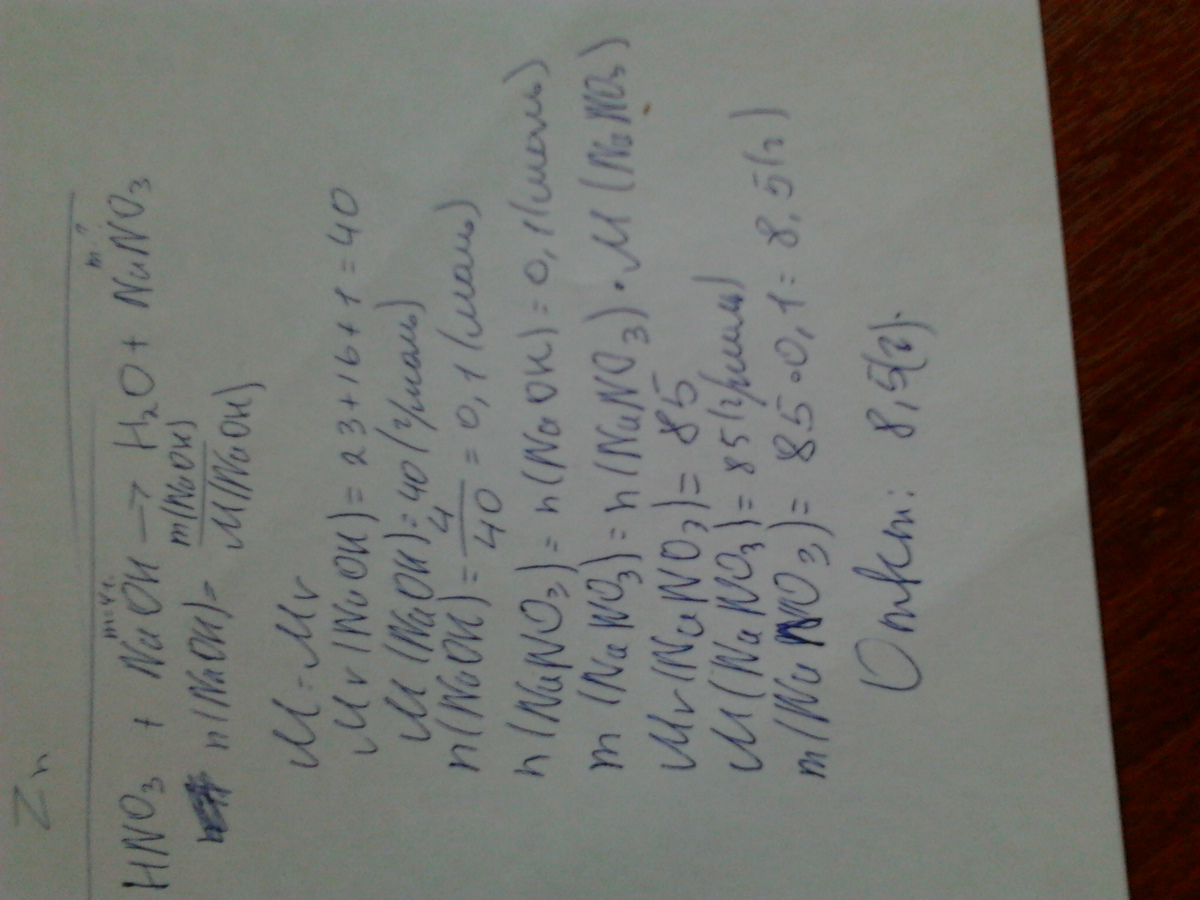 Zn
m=4г. m-?
HNO₃ + NaOH → H₂O + NaNO₃
n(NaOH)= m(NaOH)/M(NaOH)
M=Mr
Mr(NaOH)=23+16+1=40
M(NaOH)=40(г/моль)
n(NaOH)=4/40=0,1(моль)
n(NaNO₃)=n(NaOH)=0,1(моль)
m(NaNO₃)=n(NaNO₃)·M(NaNO₃)
Mr(NaNO₃)=85
M(NaNO₃)=85(г/моль)
m(NaNO₃)=85·0,1=8,5(г)
Ответ: 8,5(г).